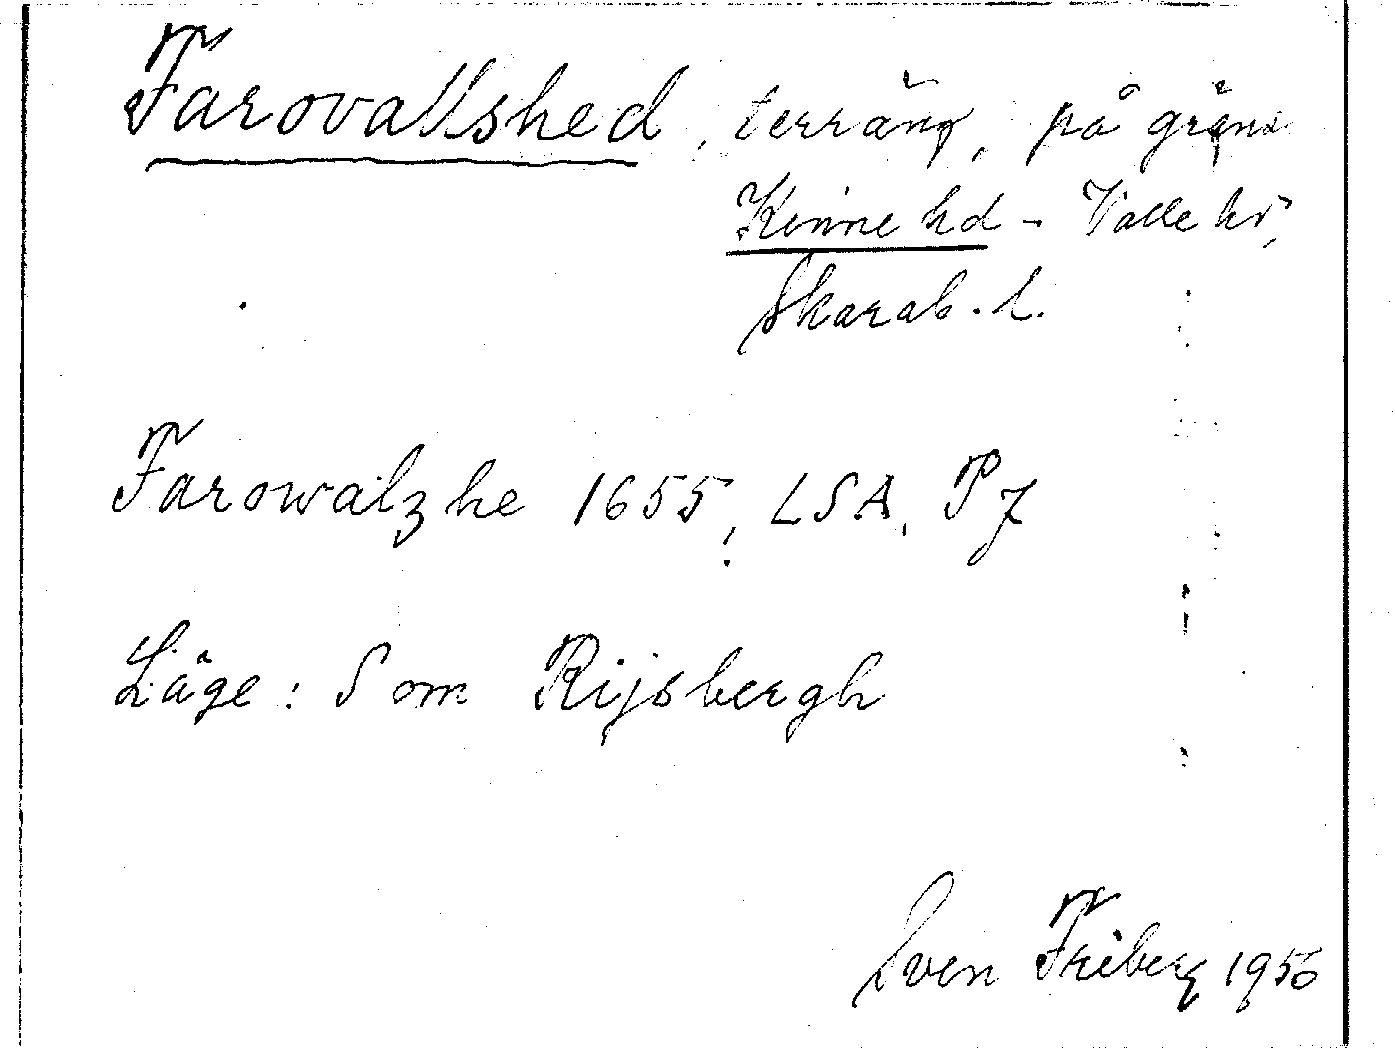 Farovallshed, terräng, på gräns
Kinne hd - Valle hd,
Skarab. l.
Farowalzhe 1655, LSA, P7
Läge: S om Rijsbergh
Sven Friberg 1956